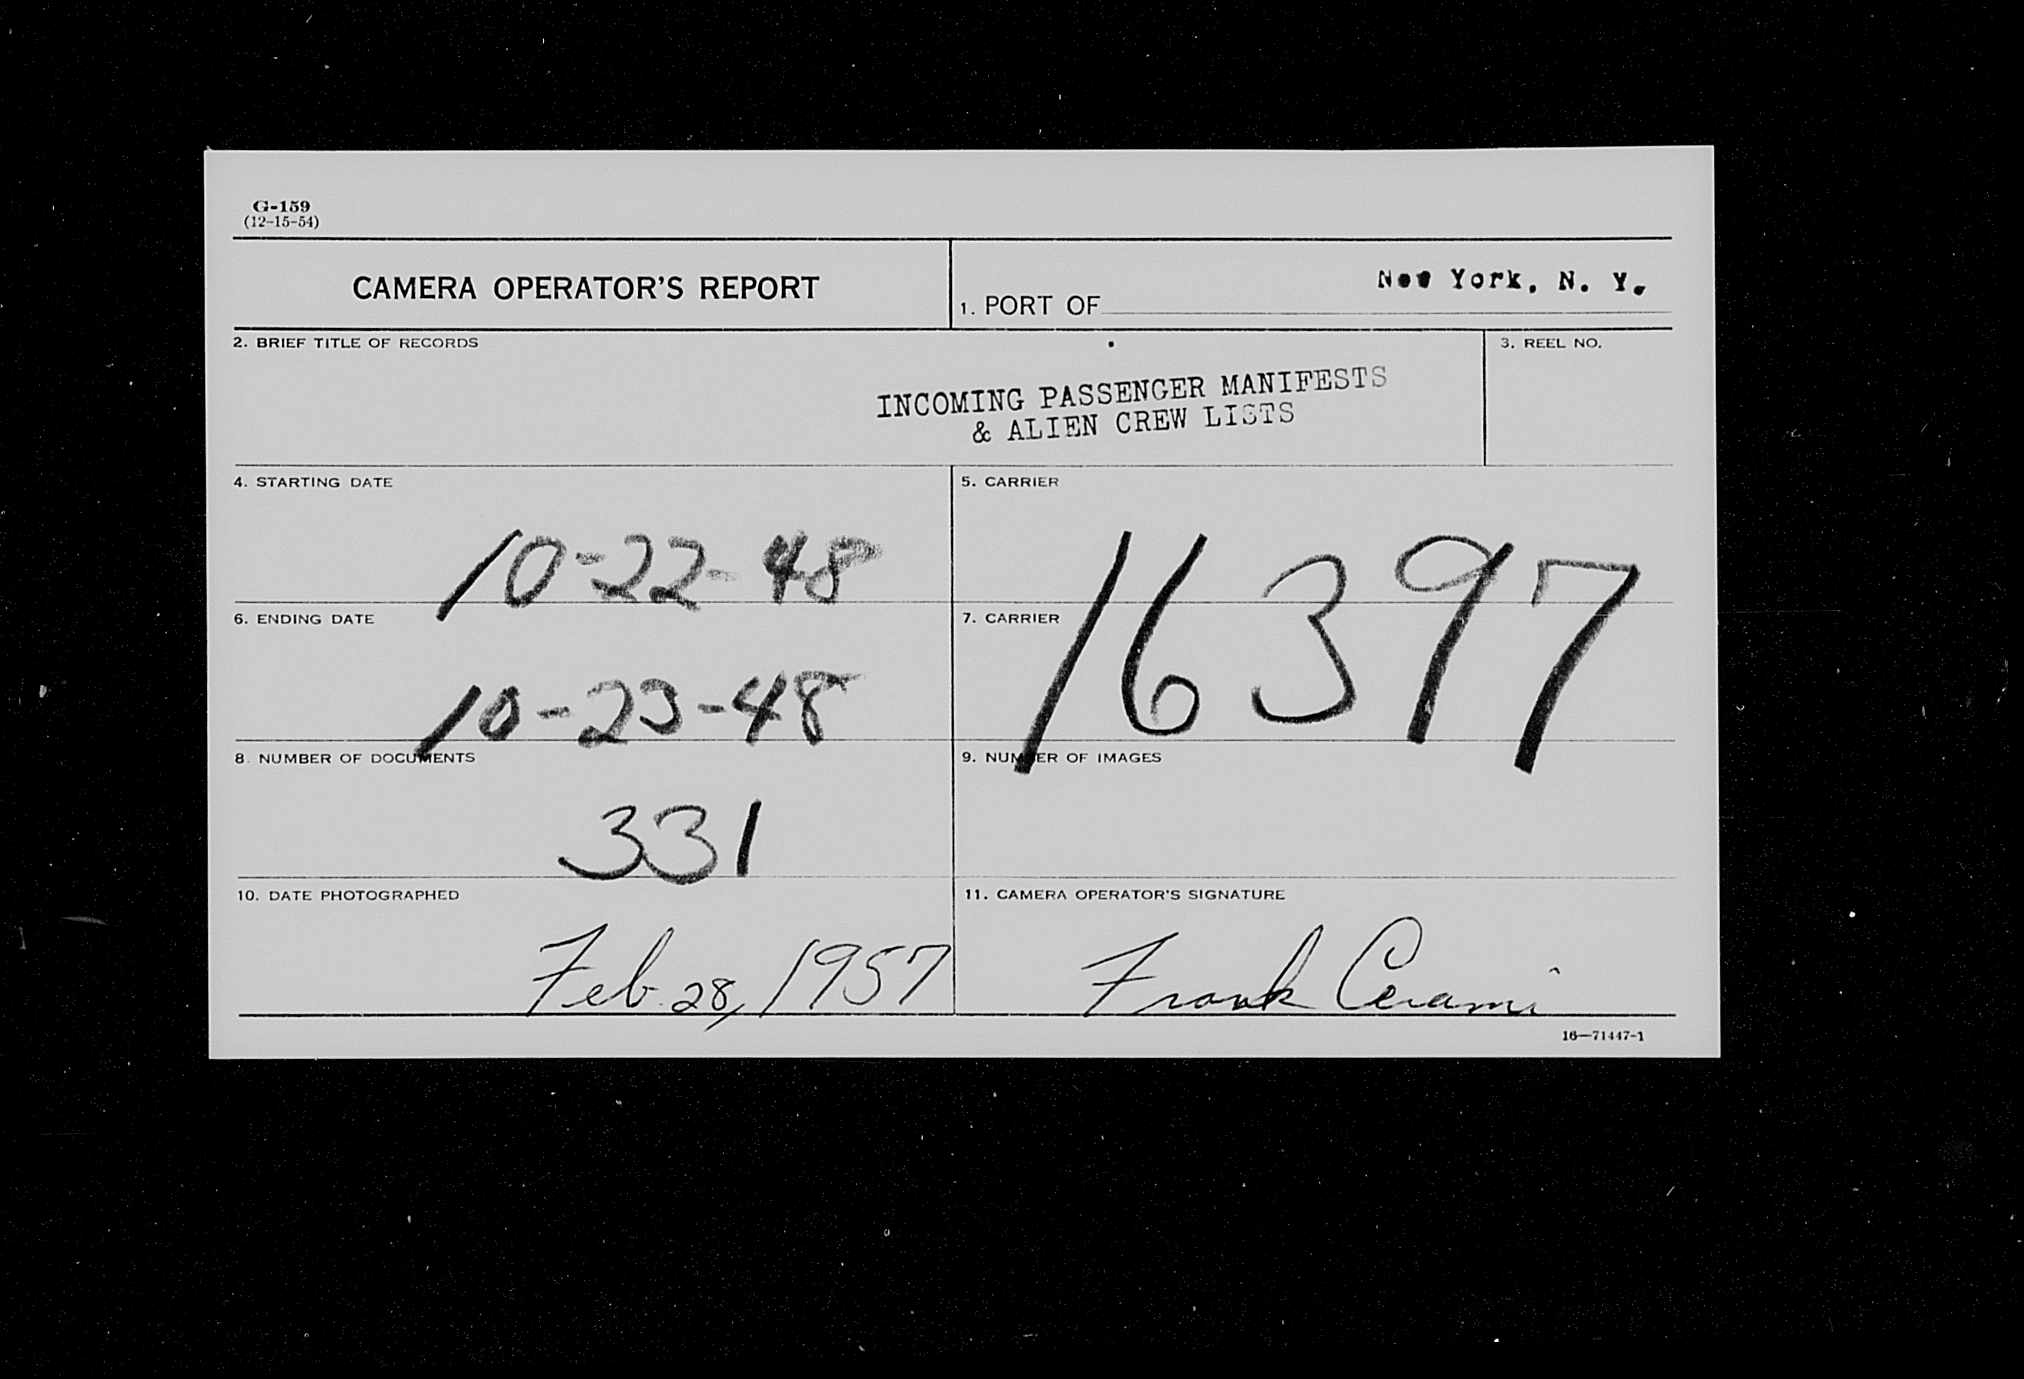 G-159
(12-15-54)
CAMERA OPERATOR'S REPORT
1. PORT OF New York, N. Y.
2. BRIEF TITLE OF RECORDS
3. REEL NO.
INCOMING PASSENGER MANIFESTS
& ALIEN CREW LISTS
4. STARTING DATE
10-22-48
5. CARRIER
16397
6. ENDING DATE
10-23-48
7. CARRIER
8. NUMBER OF DOCUMENTS
331
9. NUMBER OF IMAGES
10. DATE PHOTOGRAPHED
Feb. 28, 1957
11. CAMERA OPERATOR'S SIGNATURE
Frank Cerami
16—71447-1